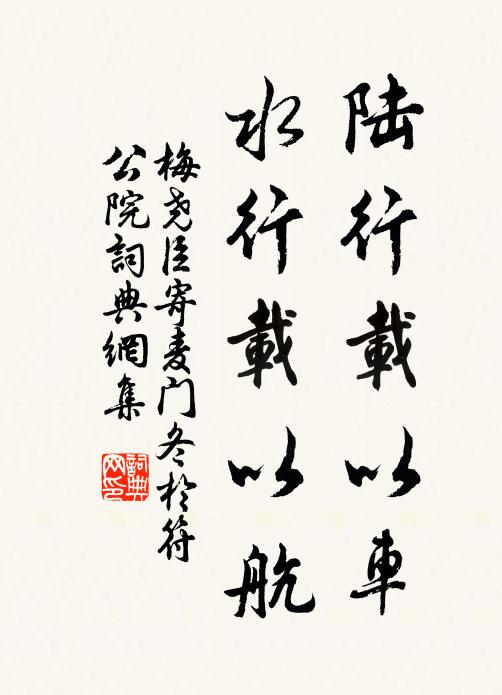 陆行載以車
水行載以航
梅尧臣寄麦门冬於符
公院詞典網集
詞典
网印